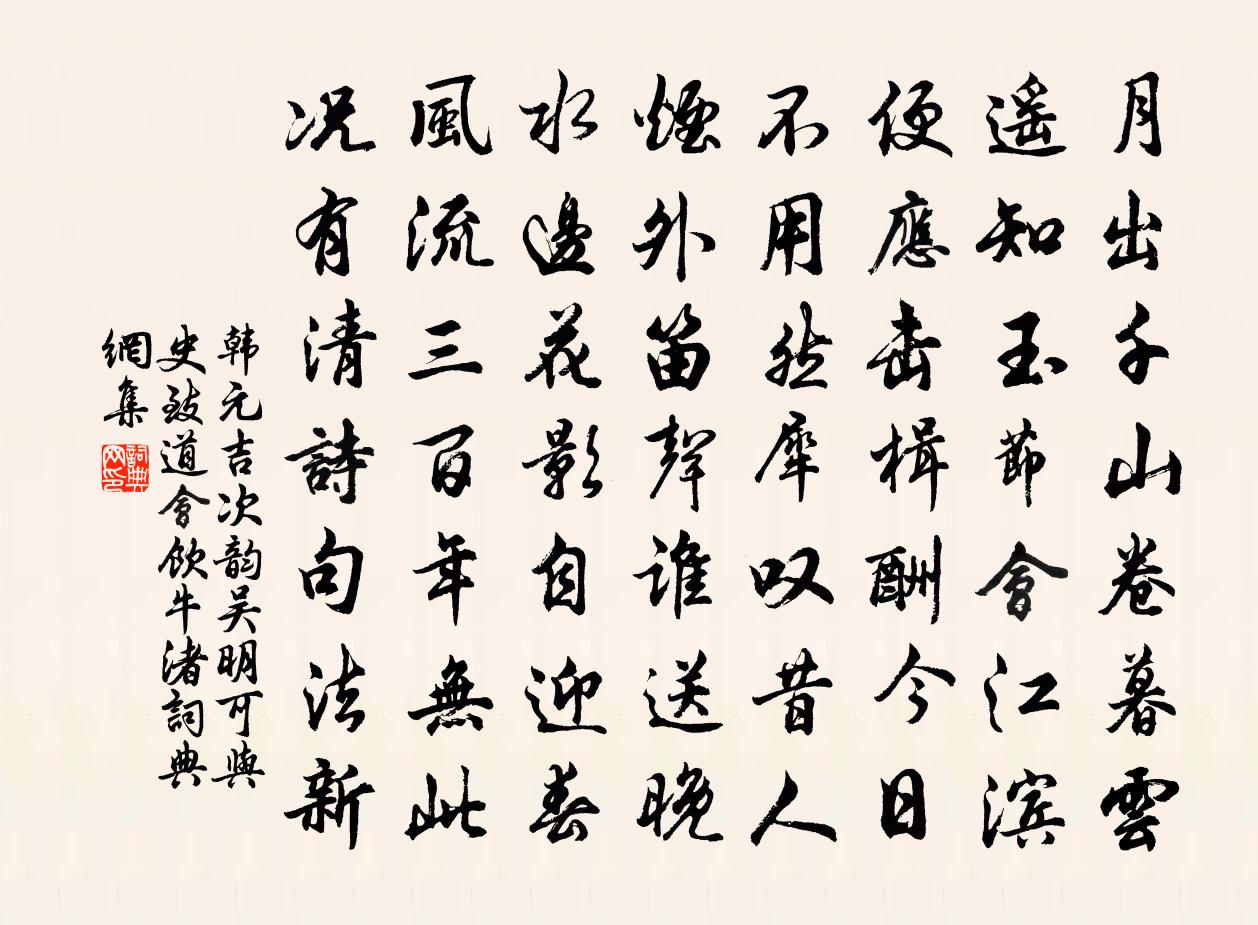 月出千山卷暮雲
遥知玉節會江滨
便應击楫酬今日
不用然犀叹昔人
煙外笛聲谁送晚
水邊花影自迎春
風流三百年無此
况有清詩句法新
韩元吉次韵吴明可與
史致道會饮牛渚詞典
網集
詞典网印